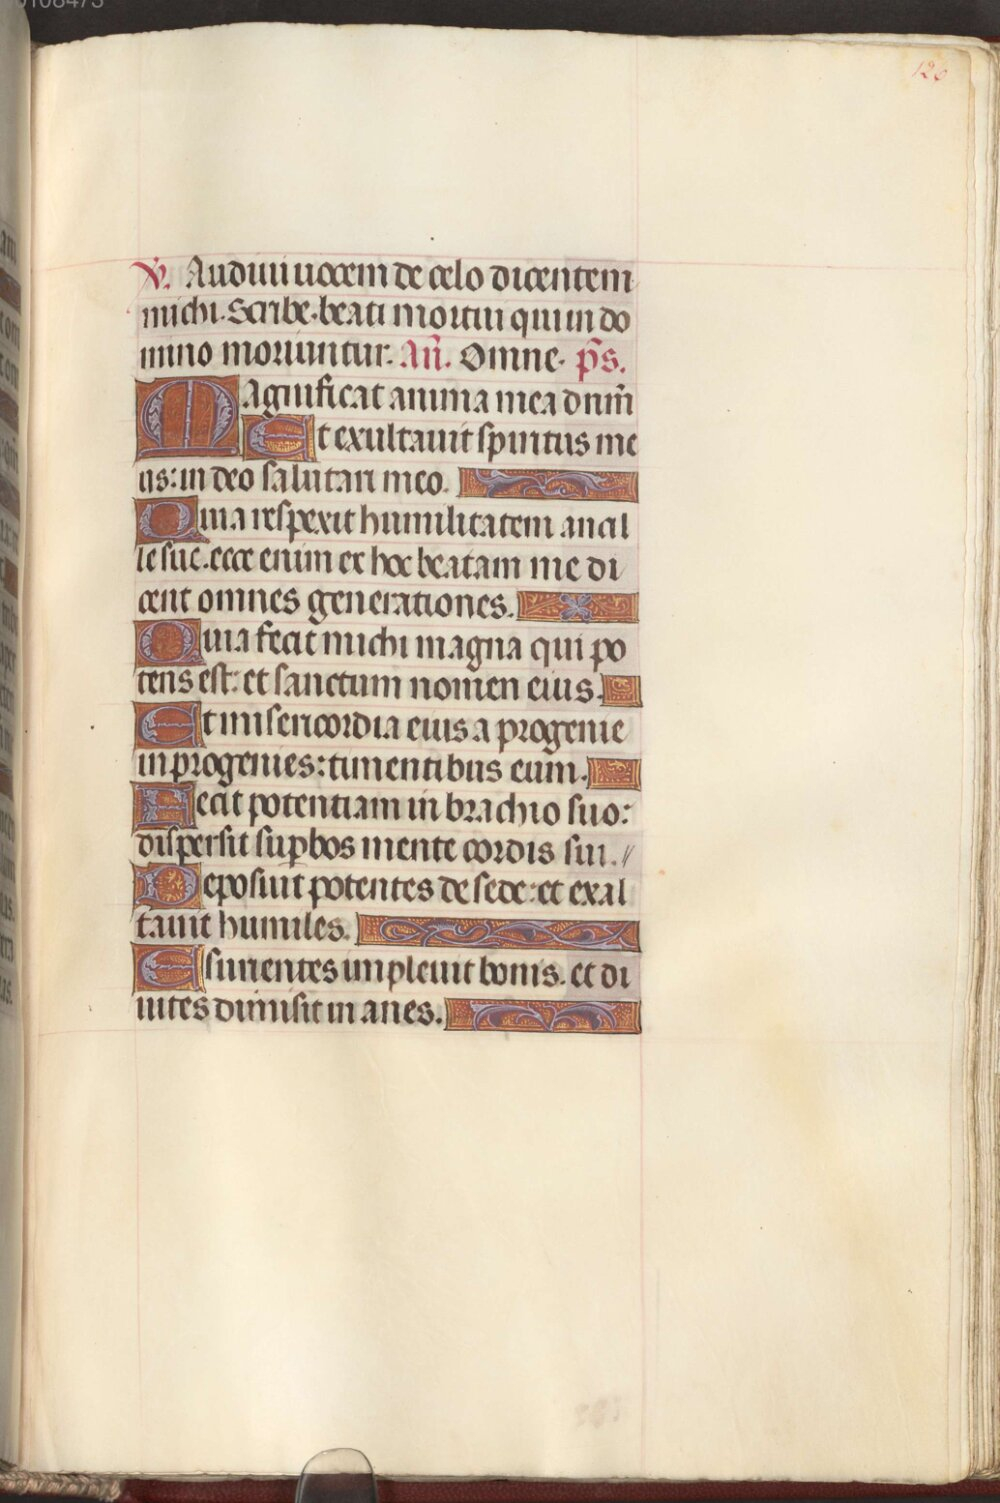 120
V. Audiui uocem de celo dicentem
michi. Scribe. beati mortui qui in do
mino moriuntur. Añ. Omne. p̄s.
Magnificat anima mea dnm̄
Et exultauit spiritus me
us: in deo salutari meo.
Quia respexit humilitatem ancil
le sue. ecce enim ex hoc beatam me di
cent omnes generationes.
Quia fecit michi magna qui po
tens est: et sanctum nomen eius.
Et misericordia eius a progenie
in progenies: timentibus eum.
Fecit potentiam in brachio suo:
dispersit suꝑbos mente cordis sui.
Deposuit potentes de sede: et exal
tauit humiles.
Esurientes impleuit bonis. et di
uites dimisit inanes.